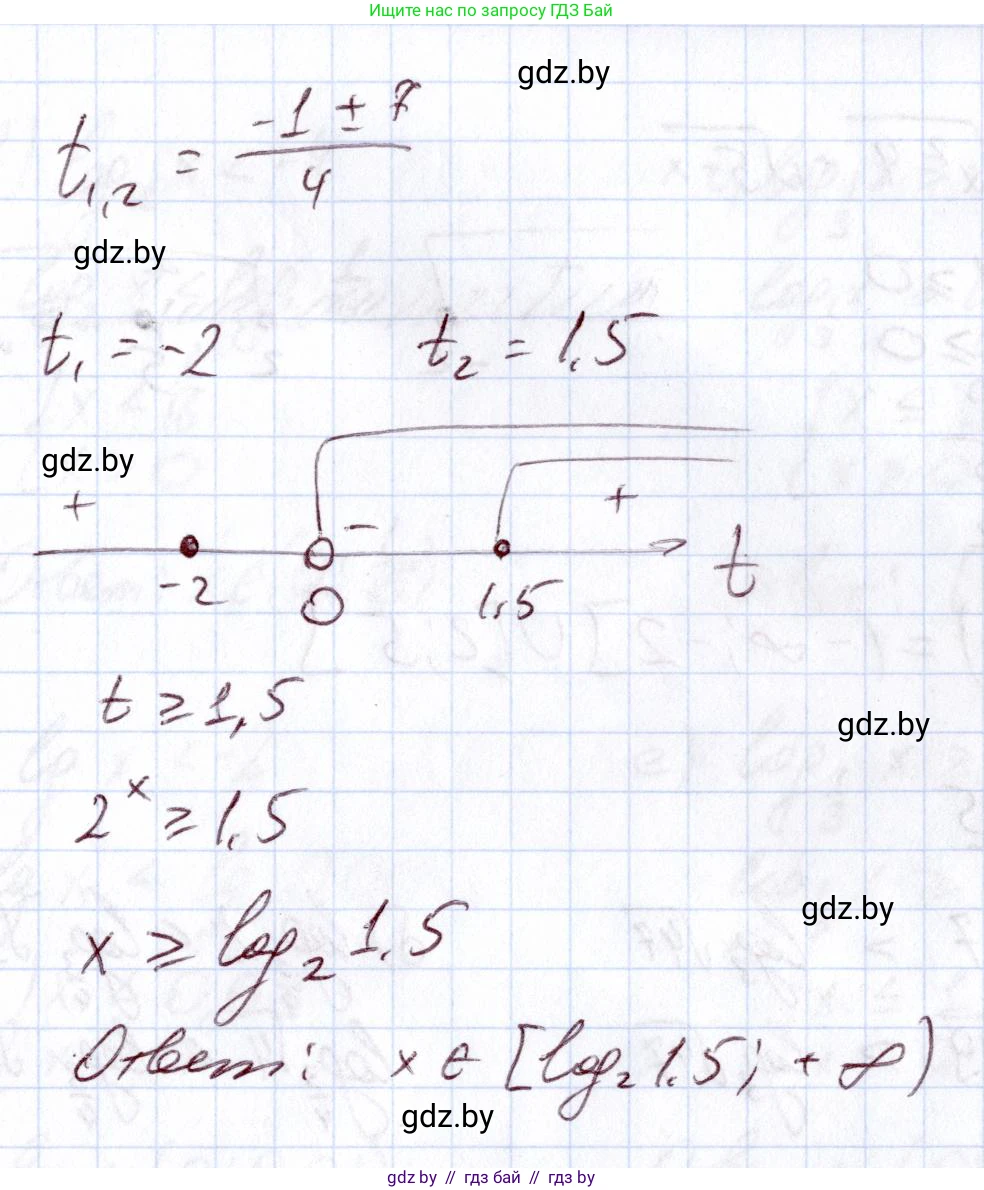 Ищите нас по запросу ГДЗ Бай
gdz.by
t₁,₂ = (-1 ± 7)/4
gdz.by
t₁ = -2 t₂ = 1.5
gdz.by
+ - +
-2 0 1,5 t
t ≥ 1,5
gdz.by
2ˣ ≥ 1.5
gdz.by
x ≥ log₂ 1.5
Ответ: x ∈ [log₂ 1.5; + ∞)
gdz.by
gdz by // гдз бай // гдз by